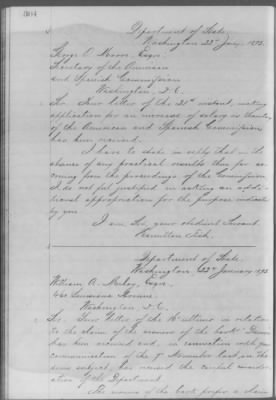 Department of State
Washington 22d Jany 1873.
George O. Moore Esqr
Secretary of the American
and Spanish Commission
Washington, D.C.
Sir. Your letter of the 21st instant, making
application for an increase of salary as Secretary
of the American and Spanish Commission
has been received.
I have to state in reply that in the
absence of any practical results thus far
coming from the proceedings of the Commission
I do not feel justified in asking an addi-
tional appropriation for the purpose indicated
by you.
I am Sir, your obedient Servant
Hamilton Fish.
Department of State.
Washington, 22d January 1873
William A. Esqre
Avenue.
Washington, D.C.
Sir. Your letter of the 16 ultimo in relation
to the claim of the owners of the bark
has been received and, in connection with your
communication of the 9 November last, on the
same subject, has received the careful consider-
ation of the Department.
The owners of the bark prefer a claim